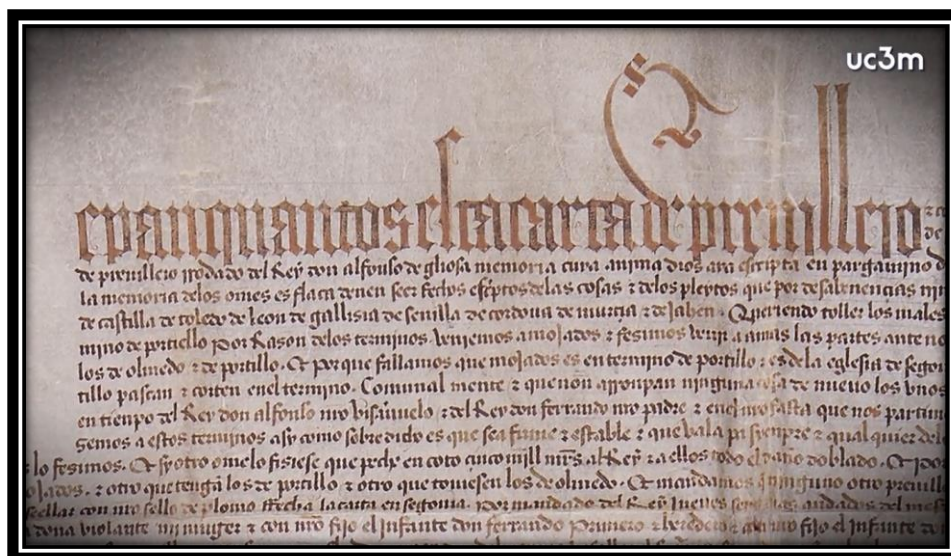 uc3m
epan quantos esta carta de preuillejo
de preuillejo rrodado del Rey don alfonso de gliosa memoria cuya anima dios aya escripta en pargamino
la memoria delos omes es flaca deuen seer fechos escriptos delas cosas & delos pleytos que por desabenencias
de castilla de toledo de leon de gallisia de seuilla de cordoua de murcia & de Jahen. Queriendo toller los males
mino de portiello por Rason delos terminos. Veniemos a mojados & fesimos venir a amas las partes ante
los de olmedo & de portillo. Et porque fallamos que mojados es en termino de portillo & es dela eglesia de
tillo pascan & corten enel termino. Comunal mente & que non arronpan ninguna cosa de nueuo los vnos
en tienpo del Rey don alfonso nro visauuelo & del Rey don ferrando nro padre & enel nro fasta que nos
gemos a estos terminos asy como sobre dicho es que sea firme & estable & que vala pa syenpre & qual quier
lo fesimos. Et sy otro ome lo fisiese que peche en coto cinco mill mrs al Rey & a ellos todo el daño doblado. Et
jados. & otro que tengā los de portillo & otro que touiesen los de olmedo. Et mandamos q ninguno otro
seellar con nro sello de plomo ffecha la carta en segouia. Por mandado del Rey Jueues
dona violante mi muger & con nro fijo el Infante don ferrando Primero & heredero & nro fijo el Infante